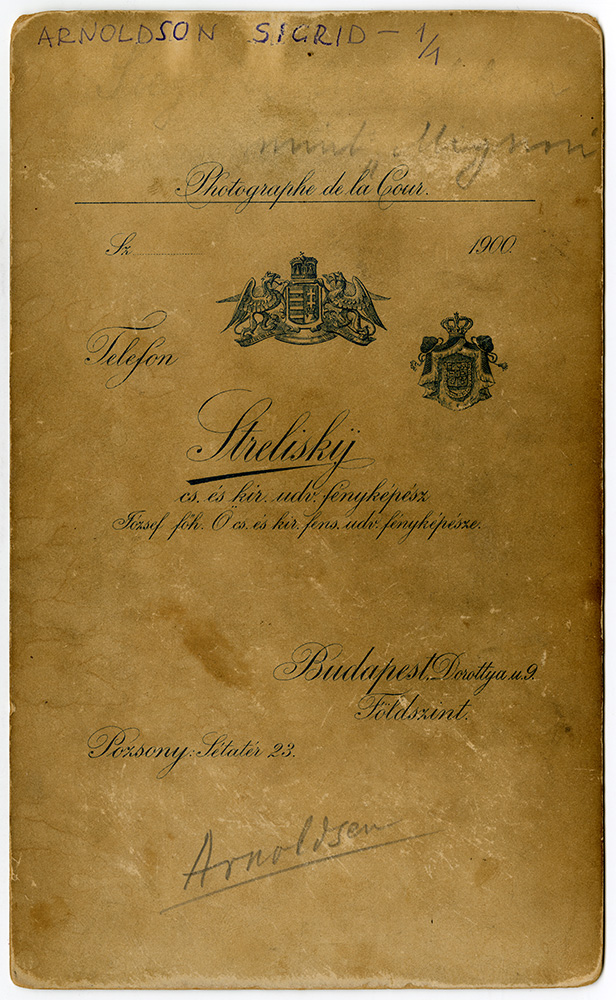 ARNOLDSON SIGRID - 1/1
mint „Mignon
Photographe de la Cour.
Sz. 1900.
Telefon
Streliskÿ
cs. és kir. udv. fényképész
József főh. Ő cs. és kir. fens. udv. fényképésze.
Budapest, Dorottya u. 9.
Földszint.
Pozsony: Sétatér 23.
Arnoldsen